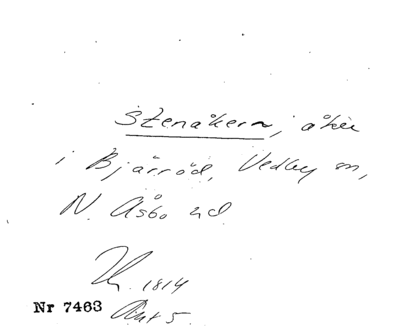 Stenåkern, åker
i Bjärröd, Vedby sn,
N. Åsbo hd
1814
Nr 7463
Akt 5.